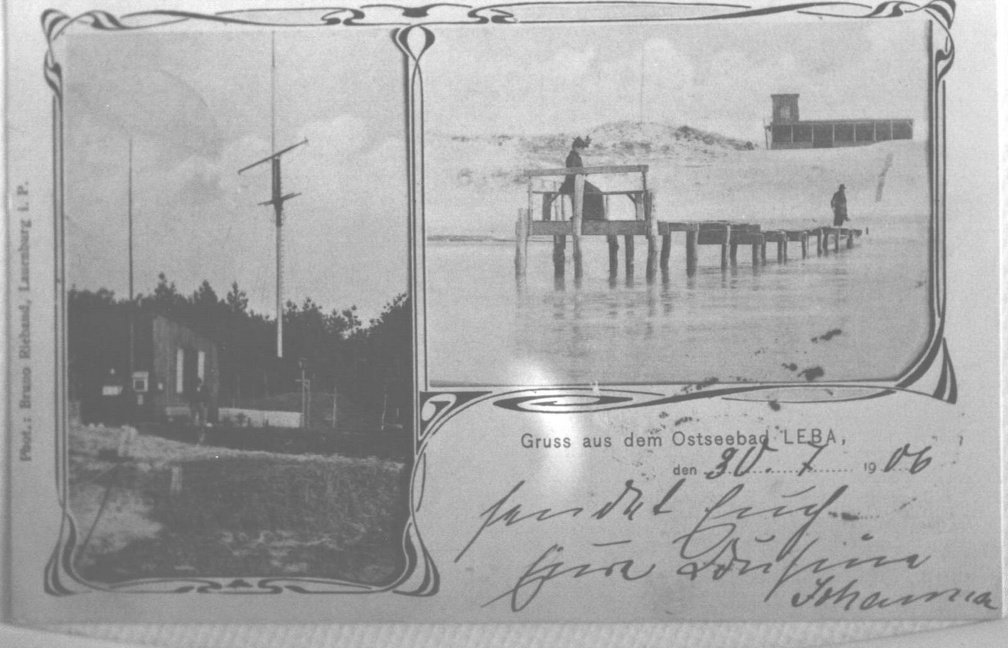 Phot.: Bruno Rieband, Lauenburg i. P.
Gruss aus dem Ostseebad LEBA,
den 30. 7. 1906
sendet Euch
Eure Cousine
Johanna